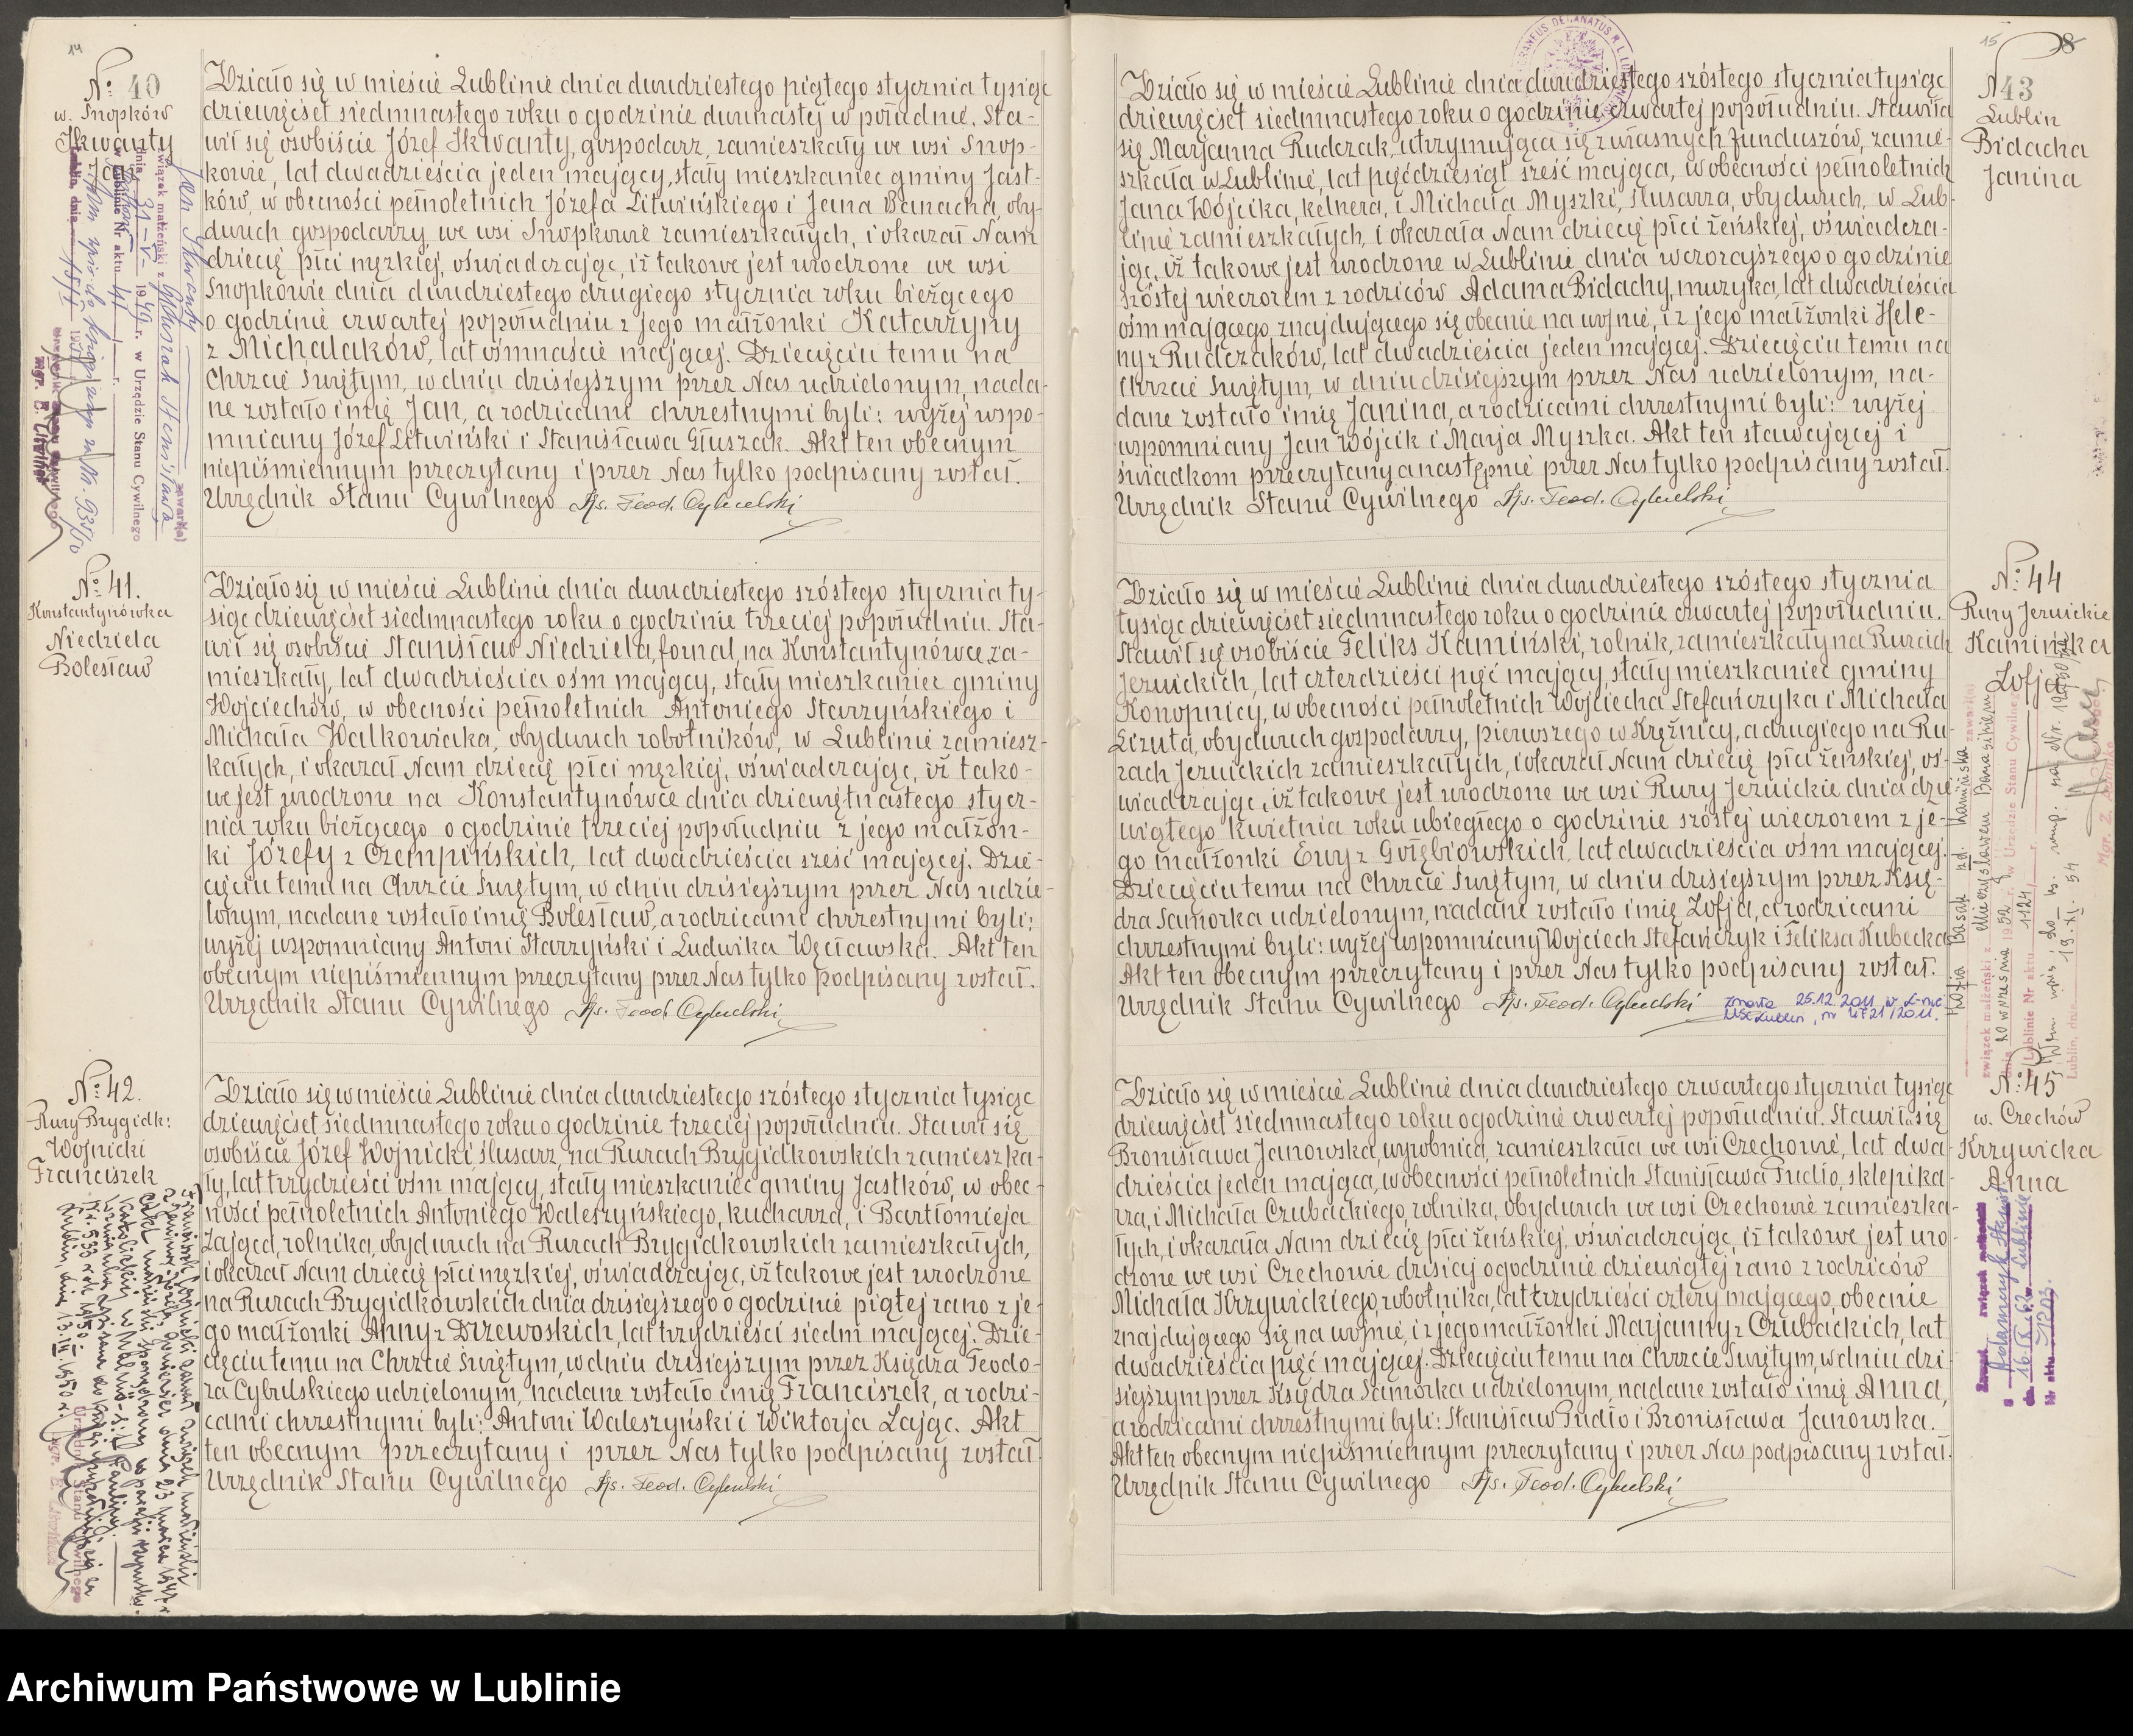 14
№ 40
w. Snopków
Skwanty
Jan
Działo się w mieście Lublinie dnia dwudziestego piątego stycznia tysiąc
dziewięćset siedmnastego roku o godzinie dwunastej w południe. Sta-
wił się osobiście Józef Skwanty, gospodarz, zamieszkały we wsi Snop-
kowie, lat dwadzieścia jeden mający, stały mieszkaniec gminy Jast-
ków, w obecności pełnoletnich Józefa Litwińskiego i Jana Banacha, oby-
dwuch gospodarzy, we wsi Snopkowie zamieszkałych, i okazał Nam
dziecię płci męzkiej, oświadczając, iż takowe jest urodzone we wsi
Snopkowie dnia dwudziestego drugiego stycznia roku bieżącego
o godzinie czwartej popołudniu z jego małżonki Katarzyny
z Michalaków, lat ośmnaście mającej. Dziecięciu temu na
Chrzcie Świętym, w dniu dzisiejszym przez Nas udzielonym, nada-
ne zostało imię Jan, a rodzicami chrzestnymi byli: wyżej wspo-
mniany Józef Litwiński i Stanisława Głuszak. Akt ten obecnym
niepiśmiennym przeczytany i przez Nas tylko podpisany został.
Urzędnik Stanu Cywilnego Ks. Teod. Cybulski
№ 41.
Konstantynówka
Niedziela
Bolesław
Działo się w mieście Lublinie dnia dwudziestego szóstego stycznia ty-
siąc dziewięćset siedmnastego roku o godzinie trzeciej popołudniu. Sta-
wił się osobiście Stanisław Niedziela, fornal, na Konstantynówce za-
mieszkały, lat dwadzieścia ośm mający, stały mieszkaniec gminy
Wojciechów, w obecności pełnoletnich Antoniego Starzyńskiego i
Michała Walkowiaka, obydwuch robotników, w Lublinie zamiesz-
kałych, i okazał Nam dziecię płci męzkiej, oświadczając, iż tako-
we jest urodzone na Konstantynówce dnia dziewiętnastego stycz-
nia roku bieżącego o godzinie trzeciej popołudniu z jego małżon-
ki Józefy z Czempińskich, lat dwadzieścia sześć mającej. Dzie-
cięciu temu na Chrzcie Świętym, w dniu dzisiejszym przez Nas udzie-
lonym, nadane zostało imię Bolesław, a rodzicami chrzestnymi byli:
wyżej wspomniany Antoni Starzyński i Ludwika Węcławska. Akt ten
obecnym niepiśmiennym przeczytany przez Nas tylko podpisany został.
Urzędnik Stanu Cywilnego Ks. Teod. Cybulski
№ 42.
Rury Brygidk:
Wojnicki
Franciszek
Działo się w mieście Lublinie dnia dwudziestego szóstego stycznia tysiąc
dziewięćset siedmnastego roku o godzinie trzeciej popołudniu. Stawił się
osobiście Józef Wojnicki ślusarz, na Rurach Brygidkowskich zamieszka-
ły, lat trzydzieści ośm mający, stały mieszkaniec gminy Jastków, w obec-
ności pełnoletnich Antoniego Waleszyńskiego, kucharza, i Bartłomieja
Zająca, rolnika, obydwuch na Rurach Brygidkowskich zamieszkałych,
i okazał Nam dziecię płci męzkiej, oświadczając, iż takowe jest urodzone
na Rurach Brygidkowskich dnia dzisiejszego o godzinie piątej rano z je-
go małżonki Anny z Drzewoskich, lat trzydzieści siedm mającej. Dzie-
cięciu temu na Chrzcie Świętym, w dniu dzisiejszym przez Księdza Teodo-
ra Cybulskiego udzielonym, nadane zostało imię Franciszek, a rodzi-
cami chrzestnymi byli: Antoni Waleszyński i Wiktorja Zając. Akt
ten obecnym przeczytany i przez Nas tylko podpisany został
Urzędnik Stanu Cywilnego Ks. Teod. Cybulski
15
8
№ 43
Lublin
Bidacha
Janina
Działo się w mieście Lublinie dnia dwudziestego szóstego stycznia tysiąc
dziewięćset siedmnastego roku o godzinie czwartej popołudniu. Stawiła
się Marjanna Rudczak, utrzymująca się z własnych funduszów, zamie-
szkała w Lublinie, lat pięćdziesiąt sześć mająca, w obecności pełnoletnich
Jana Wójcika, kelnera, i Michała Myszki, ślusarza, obydwuch, w Lub-
linie zamieszkałych, i okazała Nam dziecię płci żeńskiej, oświadcza-
jąc, iż takowe jest urodzone w Lublinie dnia wczorajszego o godzinie
szóstej wieczorem z rodziców Adama Bidachy, muzyka, lat dwadzieścia
ośm mającego, znajdującego się obecnie na wojnie, i z jego małżonki Hele-
ny z Rudczaków, lat dwadzieścia jeden mającej. Dziecięciu temu na
Chrzcie Świętym, w dniu dzisiejszym przez Nas udzielonym, na-
dane zostało imię Janina, a rodzicami chrzestnymi byli: wyżej
wspomniany Jan Wójcik i Marja Myszka. Akt ten stawającej i
świadkom przeczytany a następnie przez Nas tylko podpisany został.
Urzędnik Stanu Cywilnego Ks. Teod. Cybulski
№ 44
Rury Jezuickie
Kamińska
Zofja
Działo się w mieście Lublinie dnia dwudziestego szóstego stycznia
tysiąc dziewięćset siedmnastego roku o godzinie czwartej popołudniu.
Stawił się osobiście Feliks Kamiński, rolnik, zamieszkały na Rurach
Jezuickich, lat czterdzieści pięć mający, stały mieszkaniec gminy
Konopnicy, w obecności pełnoletnich Wojciecha Stefańczyka i Michała
Łizuta, obydwuch gospodarzy, pierwszego w Krężnicy, a drugiego na Ru-
rach Jezuickich zamieszkałych, i okazał Nam dziecię płci żeńskiej, oś-
wiadczając, iż takowe jest urodzone we wsi Rury Jezuickie dnia dzie
wiątego kwietnia roku ubiegłego o godzinie szóstej wieczorem z je-
go małżonki Ewy z Gołębiowskich, lat dwadzieścia ośm mającej.
Dziecięciu temu na Chrzcie Świętym, w dniu dzisiejszym przez Księ-
dza Samorka udzielonym, nadane zostało imię Zofja, a rodzicami
chrzestnymi byli: wyżej wspomniany Wojciech Stefańczyk i Feliksa Kubecka
Akt ten obecnym przeczytany i przez Nas tylko podpisany został.
Urzędnik Stanu Cywilnego Ks. Teod. Cybulski
zmarła 25.12.2011 w L-nie
USC Lublin, nr 4721/2011.
№ 45
w. Czechów
Krzywicka
Anna
Działo się w mieście Lublinie dnia dwudziestego czwartego stycznia tysiąc
dziewięćset siedmnastego roku o godzinie czwartej popołudniu. Stawiła się
Bronisława Janowska, wyrobnica, zamieszkała we wsi Czechowie, lat dwa-
dzieścia jeden mająca, w obecności pełnoletnich Stanisława Pudło, sklepika-
rza, i Michała Czubackiego, rolnika, obydwuch we wsi Czechowie zamieszka-
łych, i okazała Nam dziecię płci żeńskiej, oświadczając, iż takowe jest uro-
dzone we wsi Czechowie dzisiaj o godzinie dziewiątej rano z rodziców
Michała Krzywickiego, robotnika, lat trzydzieści cztery mającego, obecnie
znajdującego się na wojnie, i z jego małżonki Marjanny z Czubackich, lat
dwadzieścia pięć mającej. Dziecięciu temu na Chrzcie Świętym, w dniu dzi-
siejszym przez Księdza Samorka udzielonym, nadane zostało imię Anna,
a rodzicami chrzestnymi byli: Stanisław Pudło i Bronisława Janowska.
Akt ten obecnym niepiśmiennym przeczytany i przez Nas podpisany został.
Urzędnik Stanu Cywilnego Ks. Teod. Cybulski
Archiwum Państwowe w Lublinie